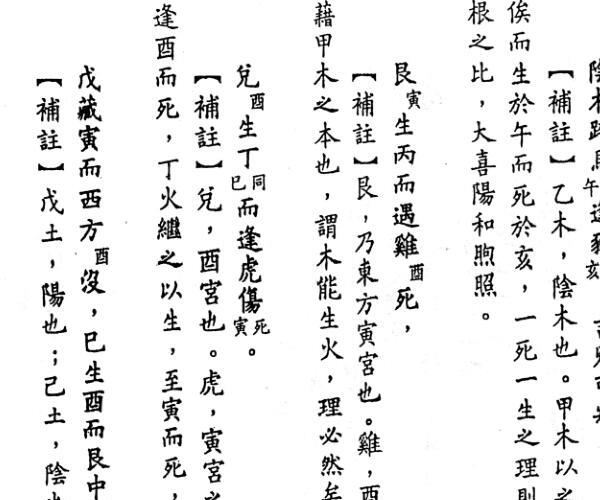 陰木跨馬午逢豬亥
【補註】乙木，陰木也。甲木以之
俟而生於午而死於亥，一死一生之理則
根之比，大喜陽和煦照。
艮寅生丙而遇雞酉死，
【補註】艮，乃東方寅宮也。雞，酉
藉甲木之本也，謂木能生火，理必然矣
兌酉生丁巳同而逢虎傷寅死。
【補註】兌，酉宮也。虎，寅宮之
逢酉而死，丁火繼之以生，至寅而死，
戊藏寅而西方酉沒，巳生酉而艮中
【補註】戊土，陽也；己土，陰也